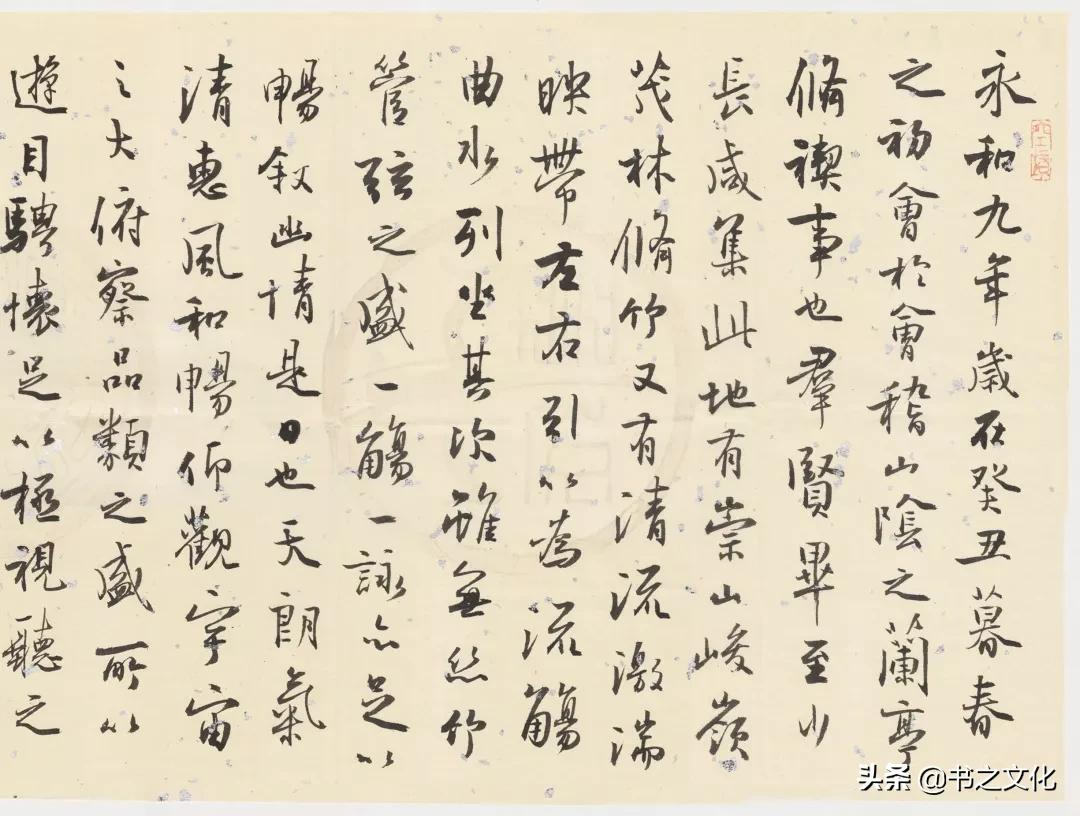 永和九年歲在癸丑暮春
之初會於會稽山陰之蘭亭
脩禊事也羣賢畢至少
長咸集此地有崇山峻嶺
茂林脩竹又有清流激湍
暎帶左右引以為流觴
曲水列坐其次雖無絲竹
管弦之盛一觴一詠亦足以
暢敘幽情是日也天朗氣
清惠風和暢仰觀宇宙
之大俯察品類之盛所以
遊目騁懷足以極視聽之
头条 @书之文化